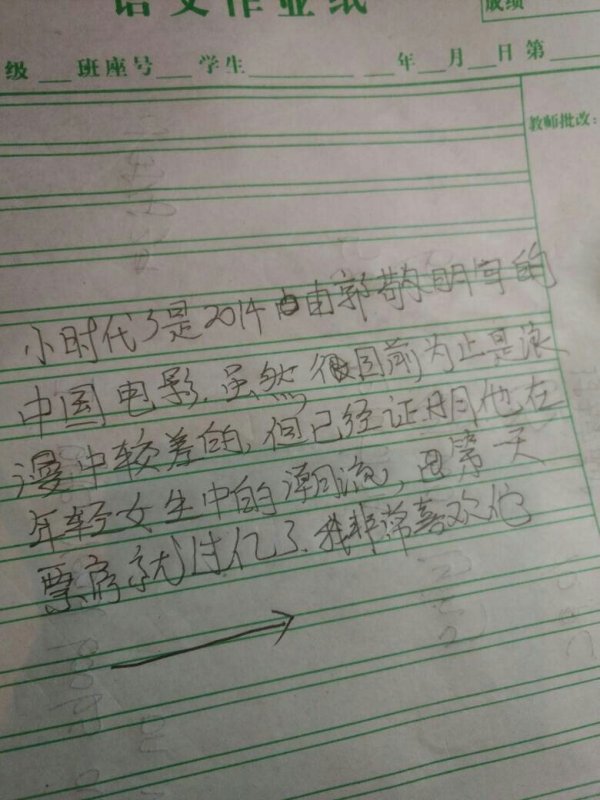 语文作业纸
成绩
级 班 座号 学生 年 月 日 第
教师批改:
小时代3是2014由郭敬明写的
中国电影.虽然很目前为止是浪
漫中较差的,但已经证明他在
年轻女生中的潮流,且第一天
票房就过亿了.我非常喜欢他